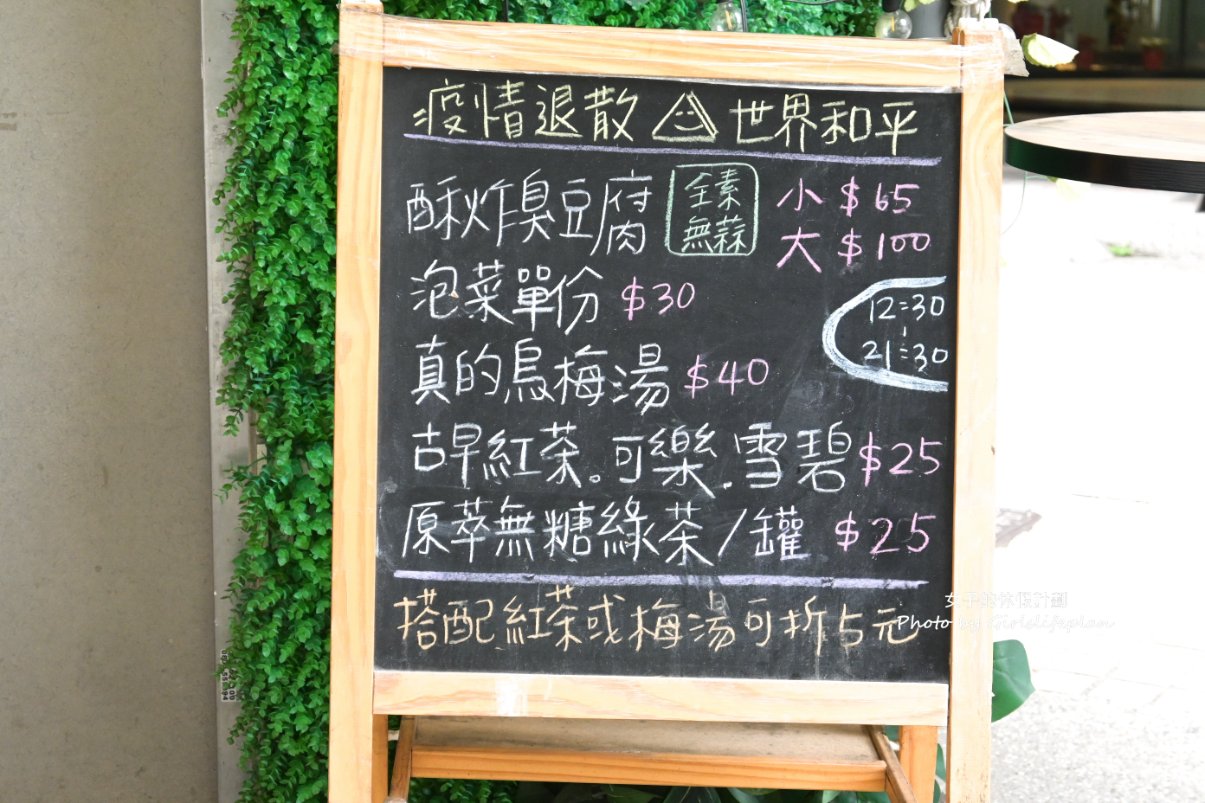 疫情退散 世界和平
酥炸臭豆腐 全素無蒜 小 $65
大 $100
泡菜單份 $30
12:30
|
21:30
真的烏梅湯 $40
古早紅茶。可樂.雪碧 $25
原萃無糖綠茶/罐 $25
搭配紅茶或梅湯可折5元
女子的休假計劃
Photo by Girlslifeplan